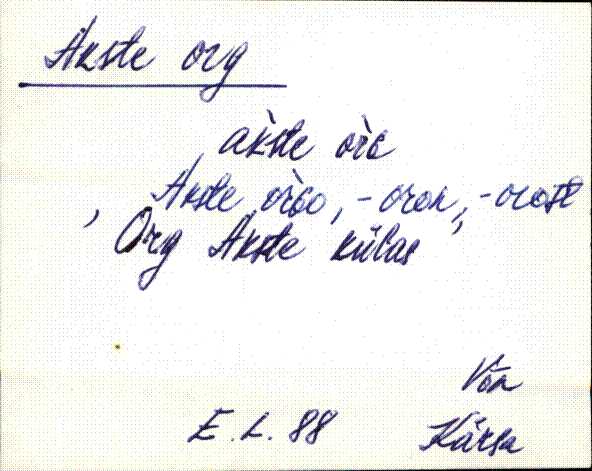 Akste org
àkste òrG
Akste òrGo, -oron, -orost
, Org Akste külas
Võn
E.L. 88 Kärsa